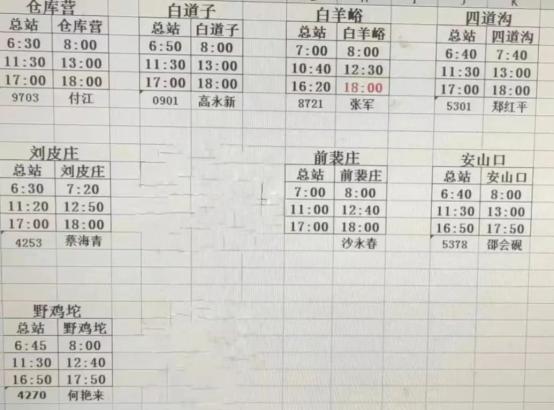 仓库营 白道子 白羊峪 四道沟
总站 仓库营 总站 白道子 总站 白羊峪 总站 四道沟
6:30 8:00 6:50 8:00 7:00 8:00 6:40 7:40
11:30 13:00 11:30 13:00 10:40 12:30 11:30 13:00
17:00 18:00 17:00 18:00 16:20 18:00 17:00 18:00
9703 付江 0901 高永新 8721 张军 5301 郑红平
刘皮庄 前裴庄 安山口
总站 刘皮庄 总站 前裴庄 总站 安山口
6:30 7:20 7:00 8:00 6:40 8:00
11:20 12:50 11:00 12:40 11:30 13:00
17:00 18:00 17:00 18:00 16:50 17:50
4253 蔡海青 沙永春 5378 邵会砚
野鸡坨
总站 野鸡坨
6:45 8:00
11:30 12:40
16:50 17:50
4270 何艳来